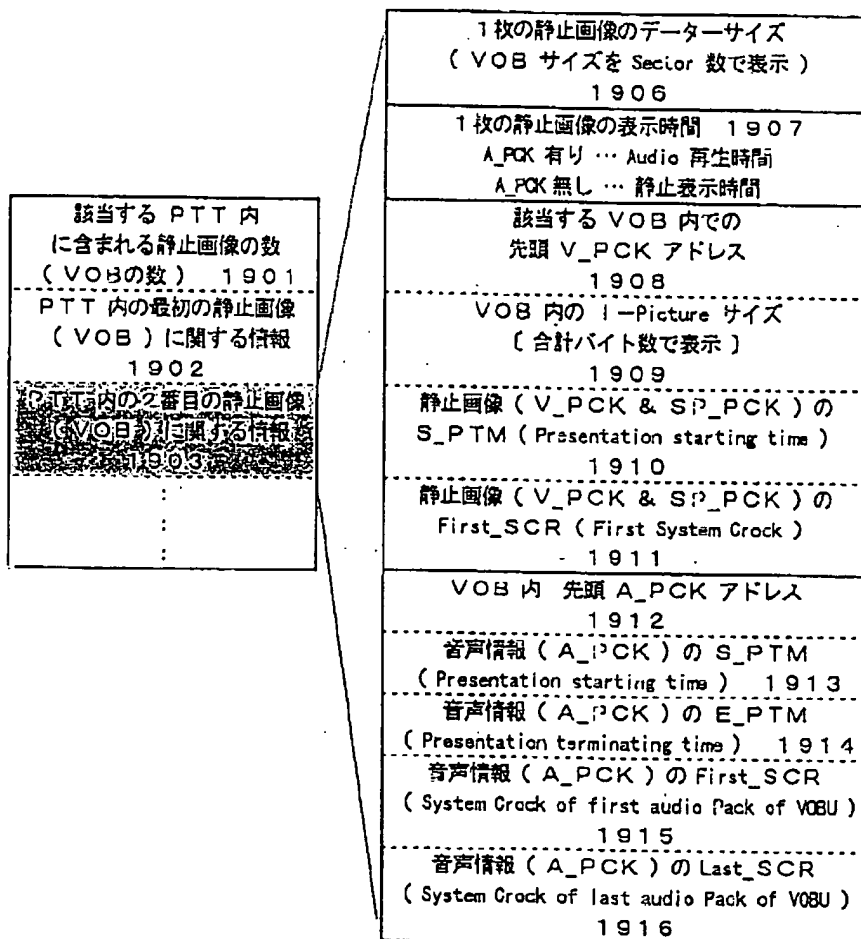 該当する PTT 内
に含まれる静止画像の数
( VOBの数 ) 1901
PTT 内の最初の静止画像
( VOB ) に関する情報
1902
PTT 内の2番目の静止画像
( VOB ) に関する情報
1903
:
:
:
1枚の静止画像のデーターサイズ
( VOB サイズを Sector 数で表示 )
1906
1枚の静止画像の表示時間 1907
A_PCK 有り … Audio 再生時間
A_PCK 無し … 静止表示時間
該当する VOB 内での
先頭 V_PCK アドレス
1908
VOB 内の I-Picture サイズ
[ 合計バイト数で表示 ]
1909
静止画像 ( V_PCK & SP_PCK ) の
S_PTM ( Presentation starting time )
1910
静止画像 ( V_PCK & SP_PCK ) の
First_SCR ( First System Crock )
1911
VOB 内 先頭 A_PCK アドレス
1912
音声情報 ( A_PCK ) の S_PTM
( Presentation starting time ) 1913
音声情報 ( A_PCK ) の E_PTM
( Presentation terminating time ) 1914
音声情報 ( A_PCK ) の First_SCR
( System Crock of first audio Pack of VOBU )
1915
音声情報 ( A_PCK ) の Last_SCR
( System Crock of last audio Pack of VOBU )
1916